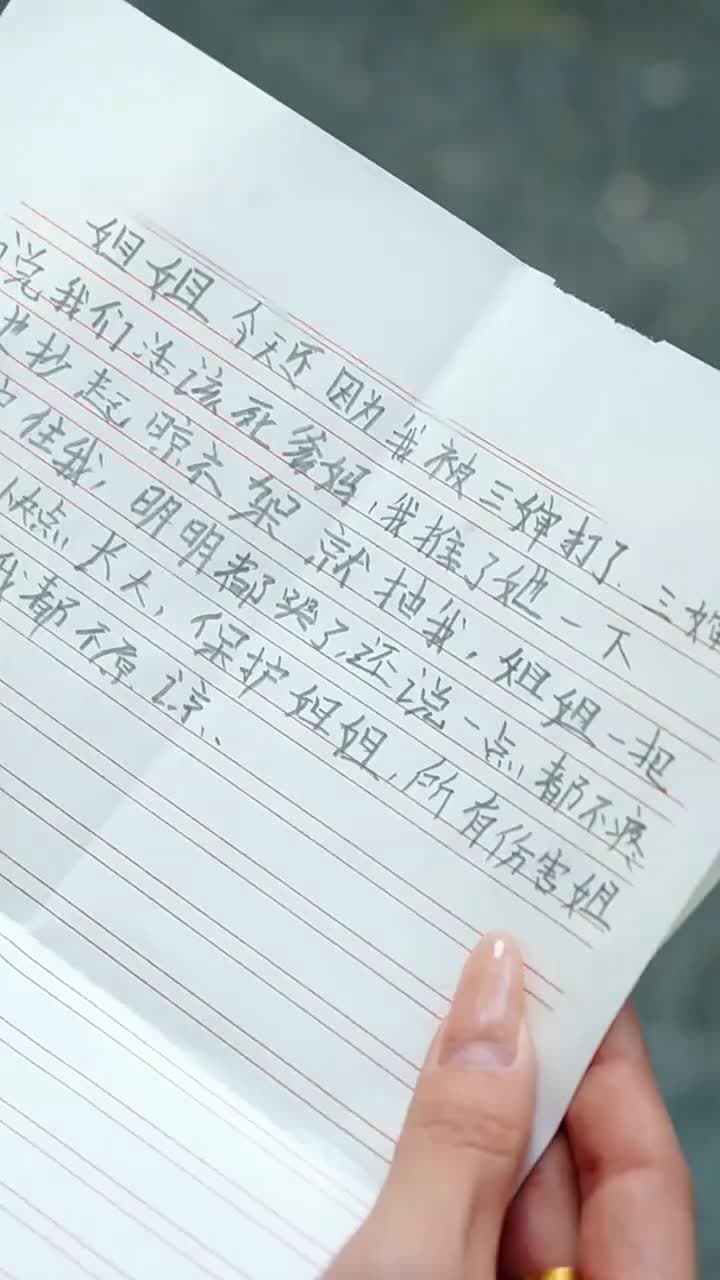 姐姐今天还因为我被三婶打了.三婶
说我们活该死爹妈,我推了她一下
抄起晾衣架就抽我,姐姐一把
住我,明明都哭了,还说一点都不疼
快点长大,保护姐姐,所有伤害姐
我都不原谅.